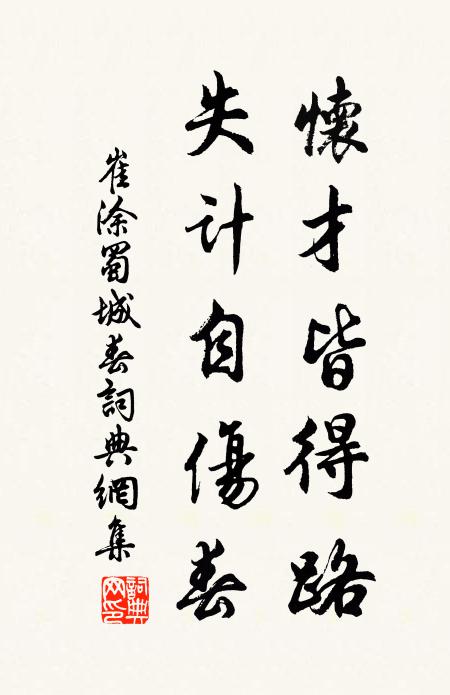 懷才皆得路
失计自傷春
崔涂蜀城春詞典網集
詞典网印